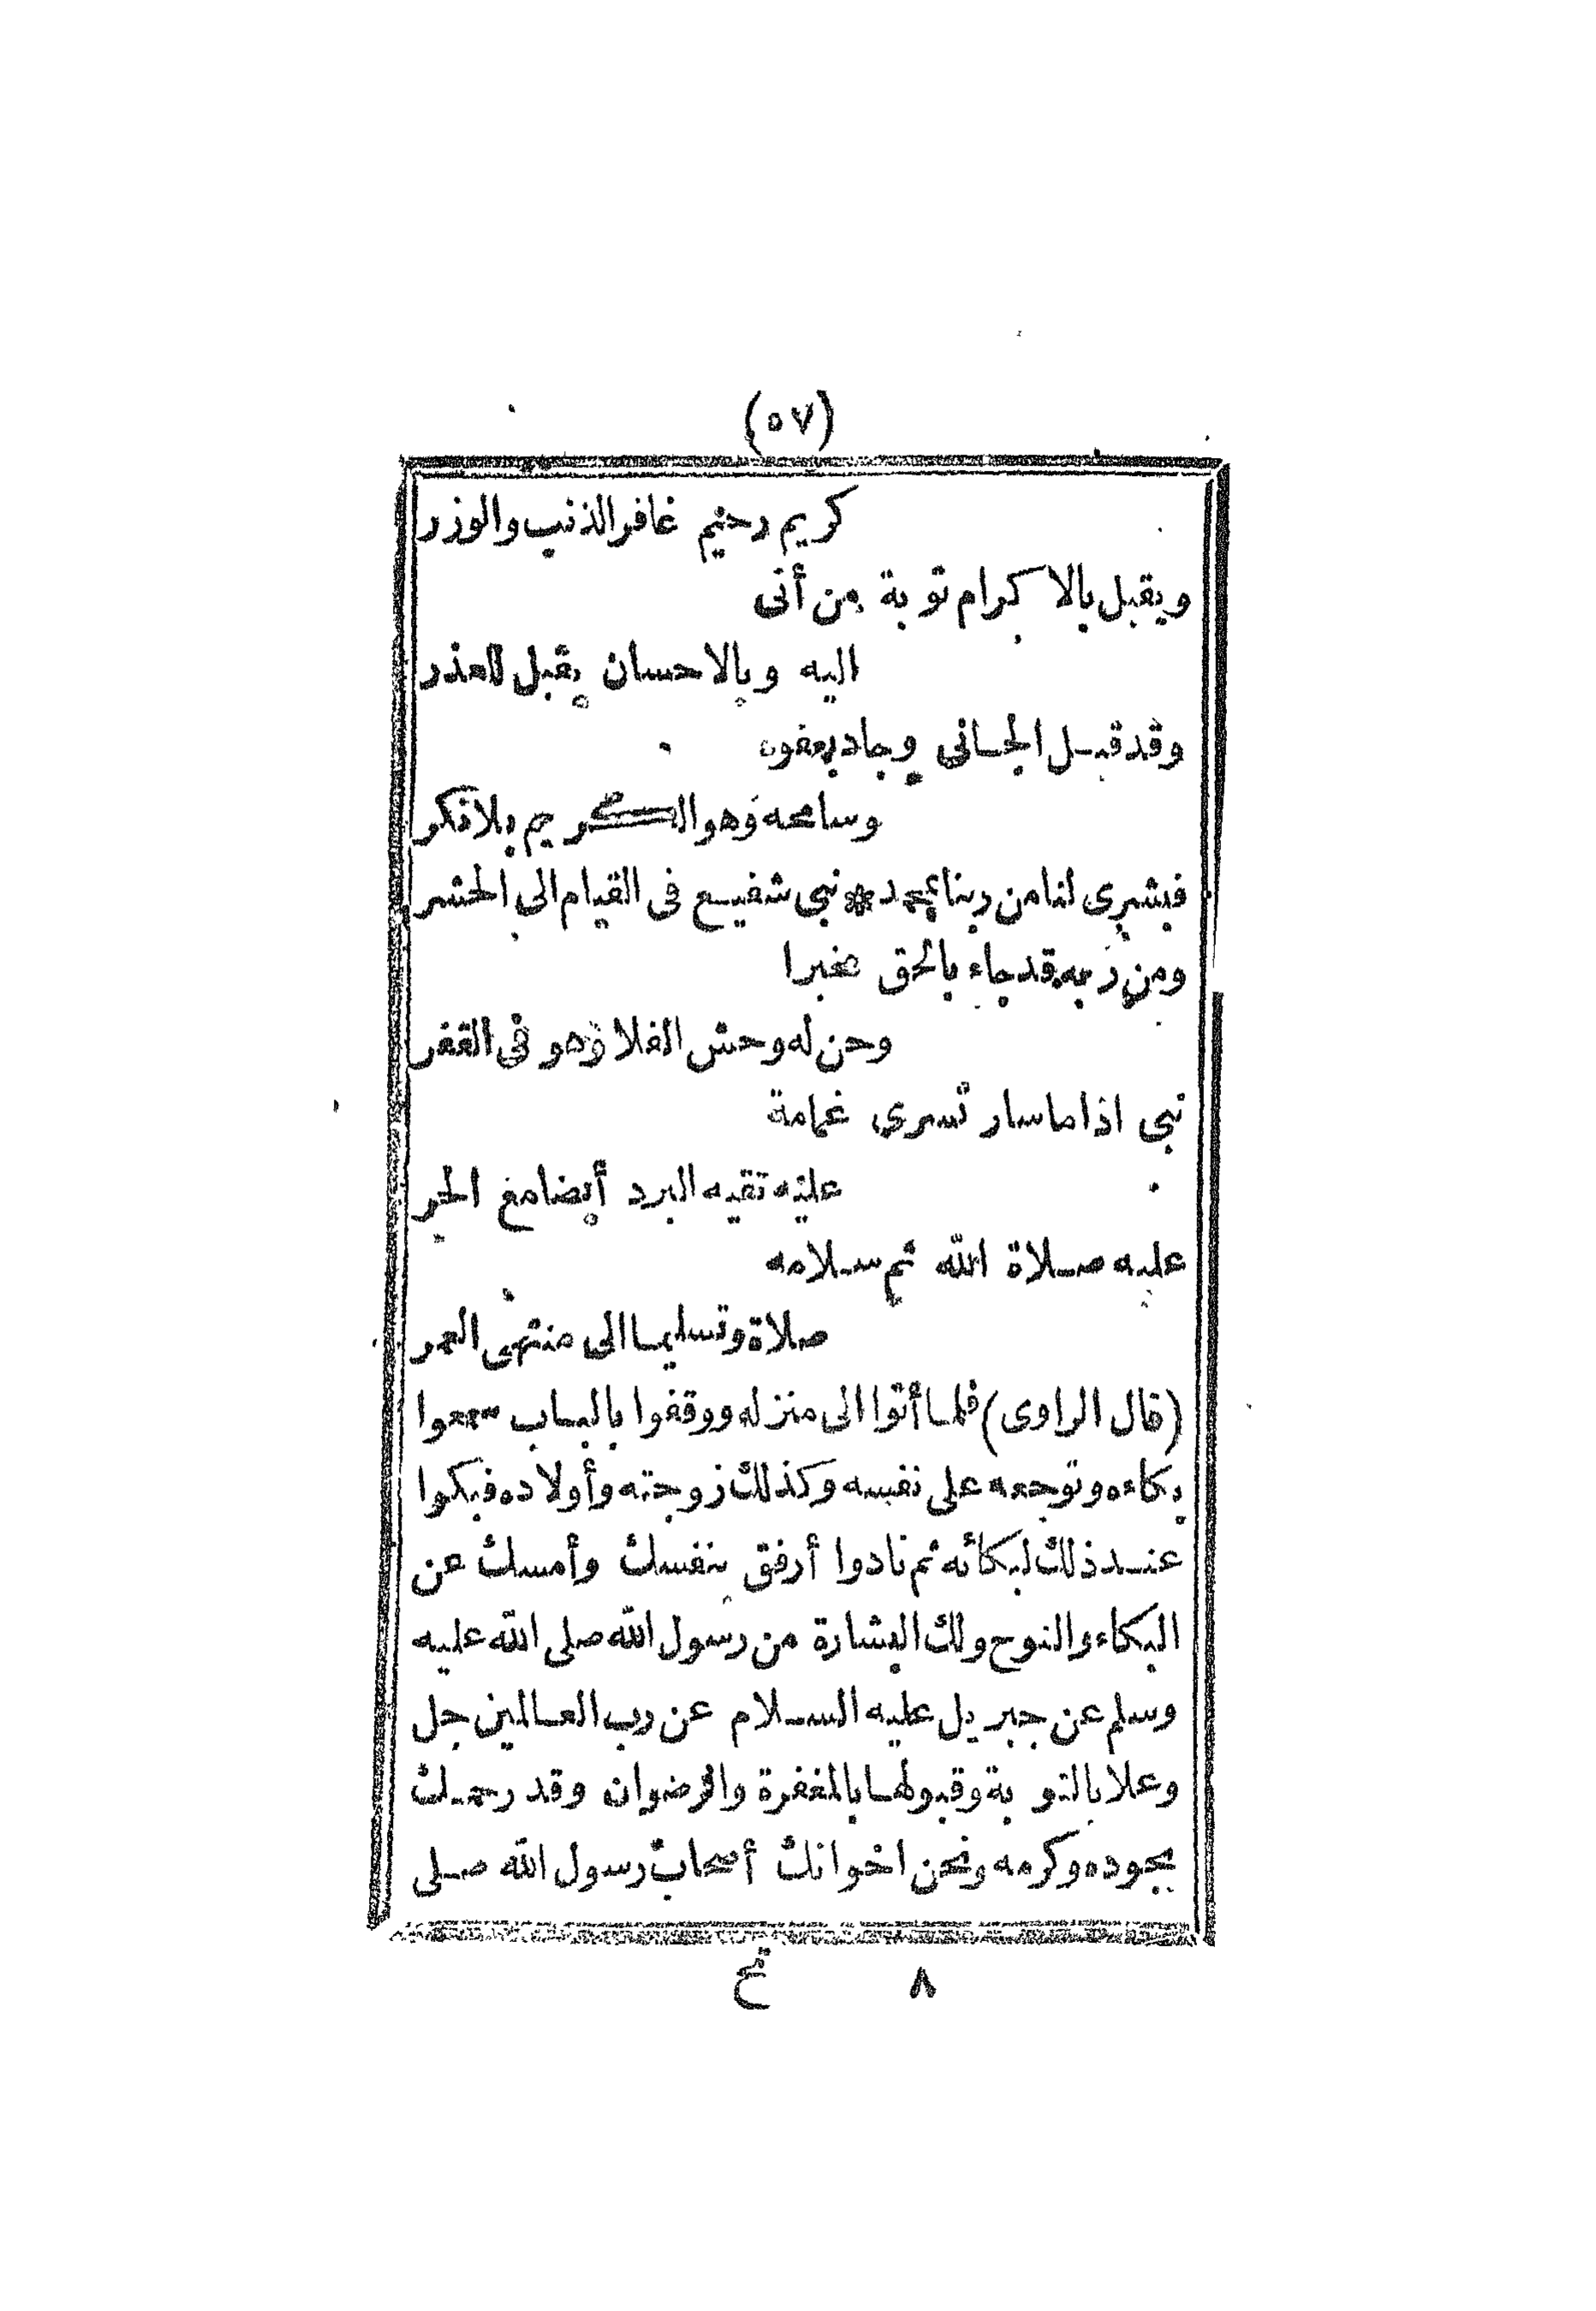 (٥٧)
كريم رحيم غافر الذنب والوزر
ويقبل بالاكرام توبة من أتى
اليه وبالاحسان يقبل للعذر
وقد قبل الجانى وجاد بعفوه
وسامحه وهو الكريم بلا نكر
فبشرى لنا من ربنا بمحمد * نبى شفيع فى القيام الى الحشر
ومن ربه قد جاء بالحق مخبرا
وحن له وحش الفلا وهو فى القفر
نبى اذا ما سار تسرى غمامة
عليه تقيه البرد أيضا مع الحر
عليه صلاة الله ثم سلامه
صلاة وتسليما الى منتهى العمر
(قال الراوى) فلما أتوا الى منزله ووقفوا بالباب سمعوا
بكاءه وتوجعه على نفسه وكذلك زوجته وأولاده فبكوا
عند ذلك لبكائه ثم نادوا أرفق بنفسك وأمسك عن
البكاء والنوح ولك البشارة من رسول الله صلى الله عليه
وسلم عن جبريل عليه السلام عن رب العالمين جل
وعلا بالتوبة وقبولها بالمغفرة والرضوان وقد رحمك
بجوده وكرمه ونحن اخوانك أصحاب رسول الله صلى
٨ تح